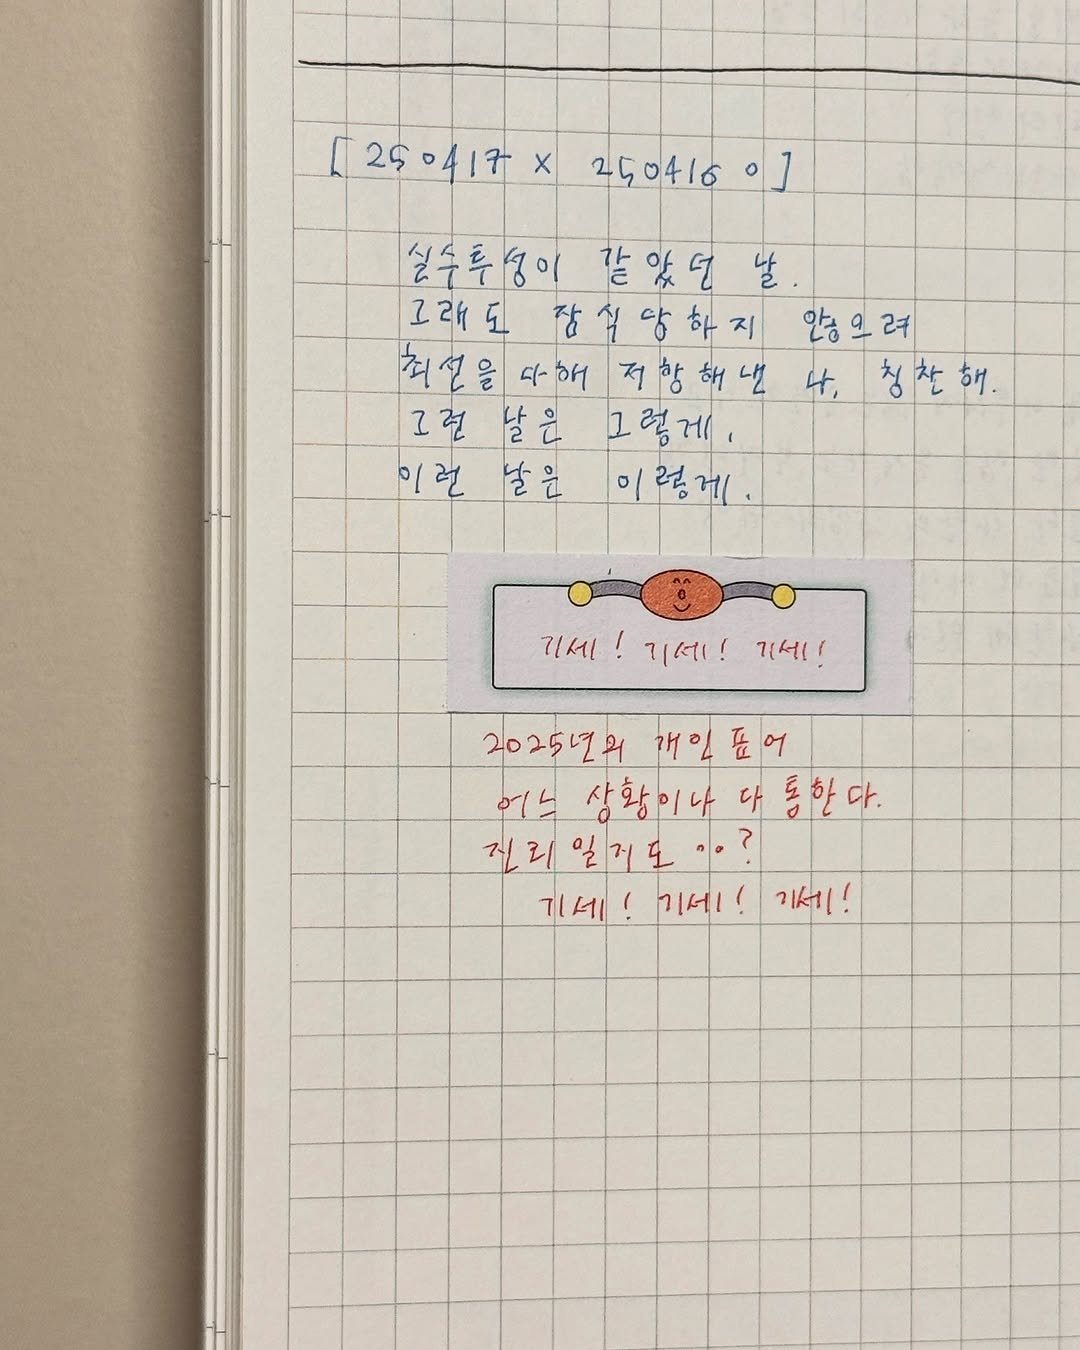 [250417 x 250416 o]
실수투성이 같았던 날.
그래도 잠식당하지 않으려
최선을 다해 저항해낸 나, 칭찬해.
그런 날은 그렇게.
이런 날은 이렇게.
기세! 기세! 기세!
2025년의 개인 표어
어느 상황이나 다 통한다.
진리일지도 ..?
기세! 기세! 기세!